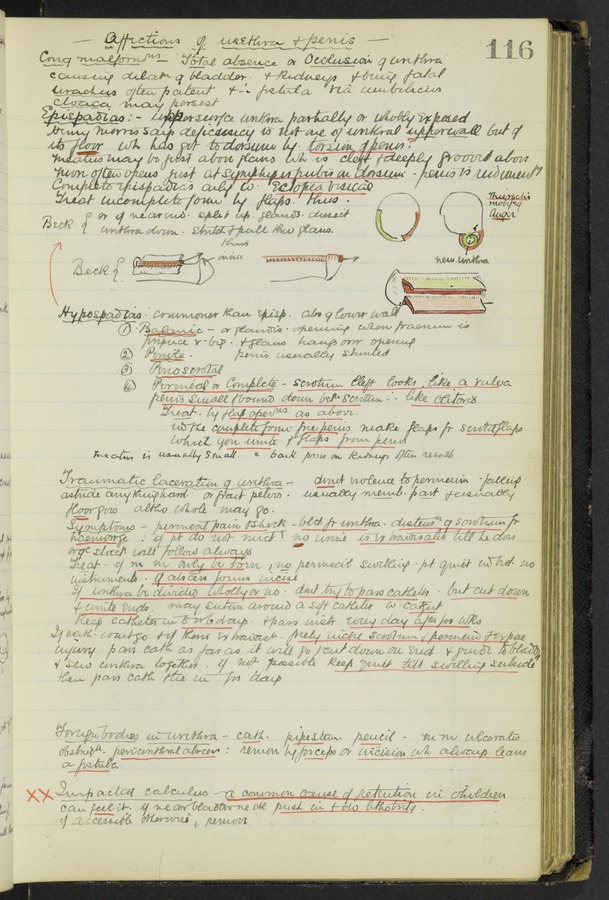 — Affections of urethra & penis —
116
Cong malformns Total absence or Occlusion of urethra
causing dilatn of bladder & kidneys & being fatal
Urachus often patent & fistula via umbilicus
Cloaca may persist
Epispadias:- Upper surface urethra partially or wholly exposed
Henry Morris says deficiency is not one of urethral upper wall but of
its floor wh has got to dorsum by torsion of penis?
meatus may be just above glans wh is cleft & deeply grooved above
more often opens just at symphysis pubis on dorsum . penis is rudimenty
Complete epispadias only w. Ectopia vesicae
Treat incomplete form by flaps. thus.
Beck { or if near end . split up . glands . dissect
urethra down . stretch & pull thro glans.
Thiersch's
modifd
Duplay
thus
incise
Beck {
new urethra
Hypospadias . commoner than episp. abs of lower wall
① Balanic – or glandis . opening when fraenum is
prepuce v. big . & glans hangs over opening
② Penile . penis usually stunted
③ Penoscrotal
④ Perineal or Complete – scrotum cleft looks like a vulva
penis small & bound down betn scrotum ∴ like clitoris
Treat . by flap operns as above.
w the complete form free penis make flaps fr scrotal flaps
which you unite & flaps from penis
Meatus is usually small . & back press on kidneys often results
Traumatic laceration of urethra – direct violence to perineum . falling
astride anything hard or fract pelvis . usually memb. part & usually
floor goes altho whole may go.
Symptoms – perineal pain & shock – bld fr urethra . distensn of scrotum fr
haemorge : if pt do not mict no urine is extravasated till he does
or gt shock will follow always
Treat . if m m only be torn , no perineal swelling . pt quiet in bed no
instruments . if abscess forms incise
If urethra be divided wholly or no . dont try to pass catheter . but cut down
& unite ends . may suture around a soft catheter w. catgut
keep catheter in 5 or 6 days . & pass instr every day after for wks
If cath. wont go & if there is extravasn . freely incise scrotum & perineum &
injury . pass cath as far as it will go & cut down on end & guide to bladdr
& sew urethra together . if not possible keep quiet till swelling subside
then pass cath tie in for days
Foreign bodies in urethra – cath . pipe stem . pencil . m m ulcerates
obstructn . periurethral abscess : remove by forceps or incision wh always leaves
a fistula
XX Impacted calculus – a common cause of retention in children
can feel it . if near bladder neck push in & do lithotrity .
if accessible otherwise , remove